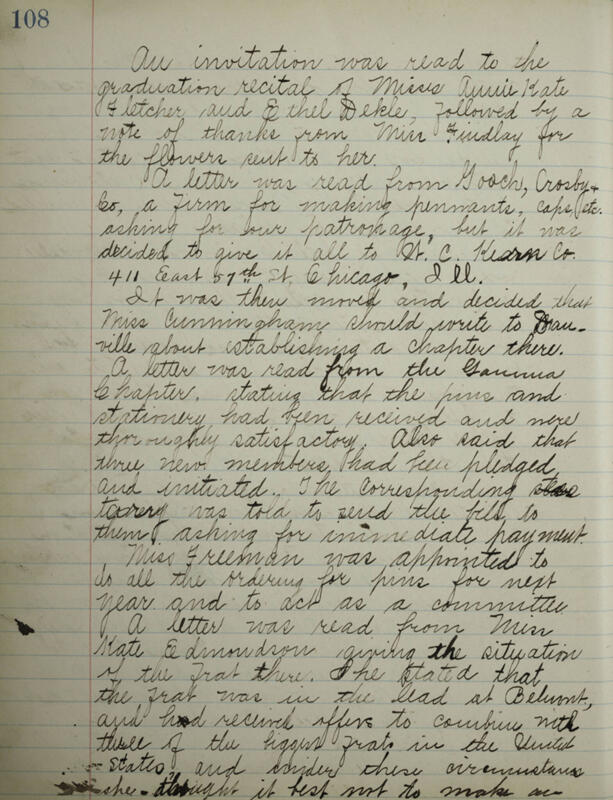 108
An invitation was read to the
graduation recital of Misses Annie Kate
Fletcher and Ethel Dekle, followed by a
note of thanks from Miss Findlay for
the flowers sent to her.
A letter was read from Gooch, Crosby +
Co, a firm for making pennants, caps, etc.
asking for our patronage, but it was
decided to give it all to W. C. Kearn Co.
411 East 57th St. Chicago, Ill.
It was then moved and decided that
Miss Cunningham should write to Dan-
ville about establishing a chapter there.
A letter was read from the Gamma
Chapter. stating that the pins and
stationery had been received and were
thoroughly satisfactory. Also said that
three new members had been pledged
and initiated. The Corresponding
tarery was told to send the bill to
them, asking for immediate payment.
Miss Freeman was appointed to
do all the ordering for pins for next
year and to act as a committee
A letter was read from Miss
Kate Edmondson giving the situation
of the Frat there. She stated that
the Frat was in the lead at Belmont,
and had received offers to combine with
three of the bigger Frats in the United
States, and under these circumstances
she thought it best not to make an